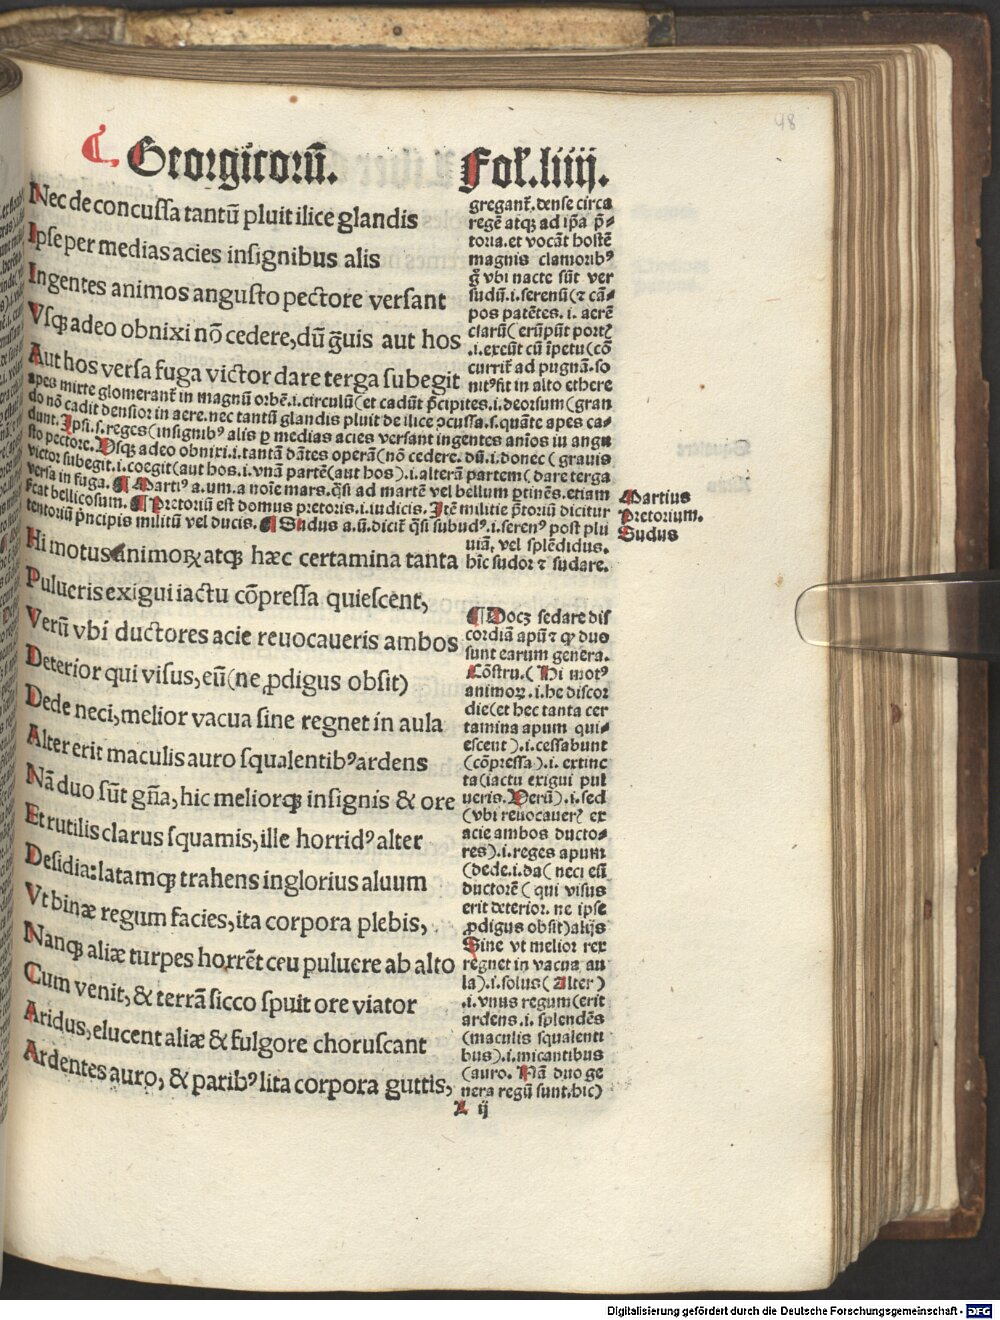 48
¶ Georgicorū. Fol. liiij.
Nec de concuſſa tantū pluit ilice glandis
Ipſe per medias acies inſignibus alis
Ingentes animos anguſto pectore verſant
Vſqꝫ adeo obnixi nō cedere, dū g̃uis aut hos
Aut hos verſa fuga victor dare terga ſubegit
gregant᷑. denſe circa
regē atqꝫ ad ip̄a p̄-
toria. et vocāt hoſtē
magnis clamoribꝰ
g̃ vbi nacte ſūt ver
ſudū .i. ſerenū (⁊ cā-
pos patētes .i. aerē
clarū (erūpūt portꝭ
.i. exeūt cū īpetu (cō
currit᷑ ad pugnā. ſo
nitꝰ fit in alto ethere
apes mixte glomerant᷑ in magnū orbē .i. circulū (et cadūt p̄cipites .i. deorſum (gran
do nō cadit denſior in aere. nec tantū glandis pluit de ilice ↄcuſſa .ſ. quāte apes ca-
dunt. Ipſi .ſ. reges (inſignibꝰ alis ꝑ medias acies verſant ingentes anīos iu angu
ſto pectore. Vſqꝫ adeo obnixi .i. tantā dātes operā (nō cedere. dū .i. donec (grauis
victor ſubegit .i. coegit (aut hos .i. vnā partē (aut hos) .i. alterā partem (dare terga
verſa in fuga. ¶ Martiꝰ a. um. a noīe mars. q̄ſi ad martē vel bellum ꝑtinēs. etiam
ſcat bellicoſum. ¶ Pretoriū eſt domus pretoris .i. iudicis. Itē militie p̄toriū dicitur
tentoriū p̄ncipis militū vel ducis. ¶ Sudus a. ū. dicit᷑ q̄ſi ſubudꝰ .i. ſerenꝰ poſt plu
uiā, vel ſplēdidus.
hīc ſudor ⁊ ſudare.
Martius
Pretorium.
Sudus
Hi motus animoꝝ, atqꝫ hæc certamina tanta
Pulueris exigui iactu cōpreſſa quieſcent,
Verū vbi ductores acie reuocaueris ambos
Deterior qui viſus, eū (ne ꝓdigus obſit)
Dede neci, melior vacua ſine regnet in aula
Alter erit maculis auro ſqualentibꝰ ardens
Nā duo ſūt gn̄a, hic meliorqꝫ inſignis & ore
Et rutilis clarus ſquamis, ille horridꝰ alter
Deſidia: latamqꝫ trahens inglorius aluum
Vt binæ regum facies, ita corpora plebis,
Nanqꝫ aliæ turpes horrēt ceu puluere ab alto
Cum venit, & terrā ſicco ſpuit ore viator
Aridus, elucent aliæ & fulgore choruſcant
Ardentes auro, & paribꝰ lita corpora guttis,
¶ Docꝫ ſedare diſ
cordiā apiū ⁊ ꝙ duo
ſunt earum genera.
Cōſtru. (Hi motꝰ
animoꝝ .i. he diſcor
die (et hec tanta cer
tamina apum qui-
eſcent) .i. ceſſabunt
(cōpreſſa) .i. extinc
ta (iactu exigui pul
ueris. Verū) .i. ſed
(vbi reuocauerꝭ ex
acie ambos ducto-
res) .i. reges apum
(dede .i. da (neci eū
ductorē (qui viſus
erit deterior. ne ipſe
ꝓdigus obſit) alijs
Sine vt melior rex
regnet in vacua au
la) .i. ſolus (Alter)
.i. vnus regum (erit
ardens .i. ſplendēs
(maculis ſqualenti
bus) .i. micantibus
(auro. Nā duo ge
nera regū ſunt. hic)
A ij
Digitalisierung gefördert durch die Deutsche Forschungsgemeinschaft - DFG